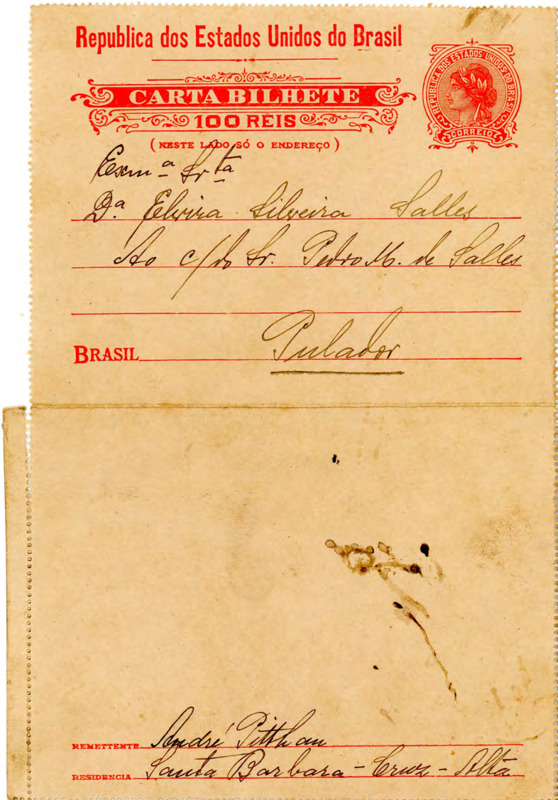 Republica dos Estados Unidos do Brasil
CARTA BILHETE
100 RÉIS
(NESTE LADO SÓ O ENDEREÇO)
REPUBLICA DOS ESTADOS UNIDOS DO BRASIL
CORREIO
Exmª Srta
Dª Elvira Silveira Salles
Ao c/do Sr. Pedro M. de Salles
BRASIL Pulador
REMETTENTE André Pitthan
RESIDENCIA Santa Barbara - Cruz - Alta